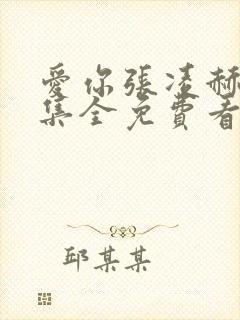 愛你張凌赫
集全免費看
邱某某